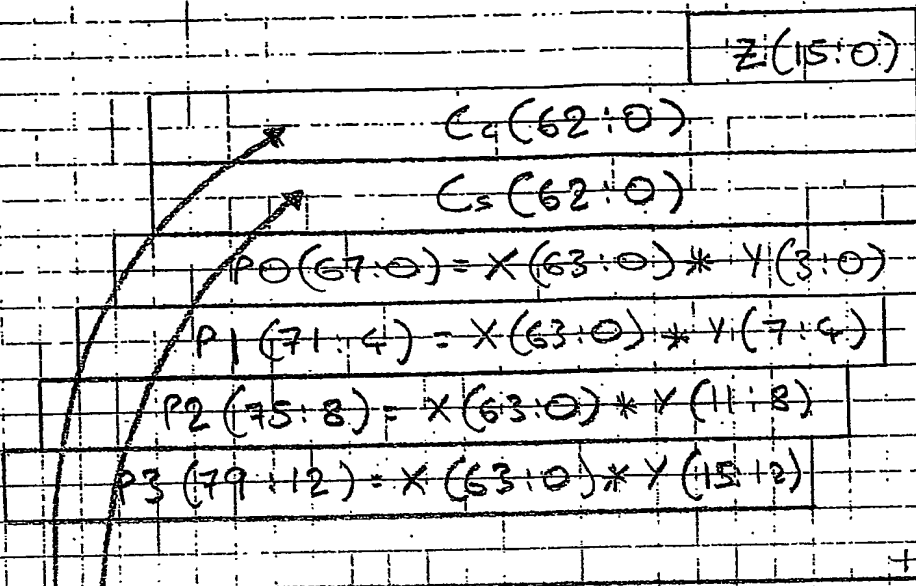 Z(15:0)
Cc(62:0)
Cs(62:0)
P0(67:0) = X(63:0) * Y(3:0)
P1(71:4) = X(63:0) * Y(7:4)
P2(75:8) = X(63:0) * Y(11:8)
P3(79:12) = X(63:0) * Y(15:12)
+